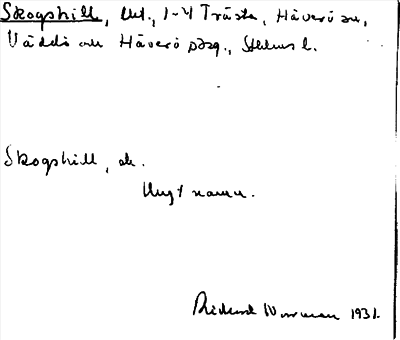 Skogshill, lht., 1-4 Trästa, Häverö sn,
Väddö och Häverö skg., Sthlms l.
Skogshill, ob.
Ungt namn.
Rickard Norrman 1931.